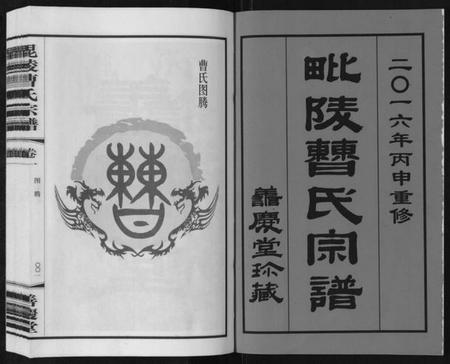 二〇一六年丙申重修
毗陵曹氏宗譜
譱慶堂珍藏
曹氏图腾
曹
毘陵曹氏宗譜
卷一
图腾
〇〇一
善慶堂